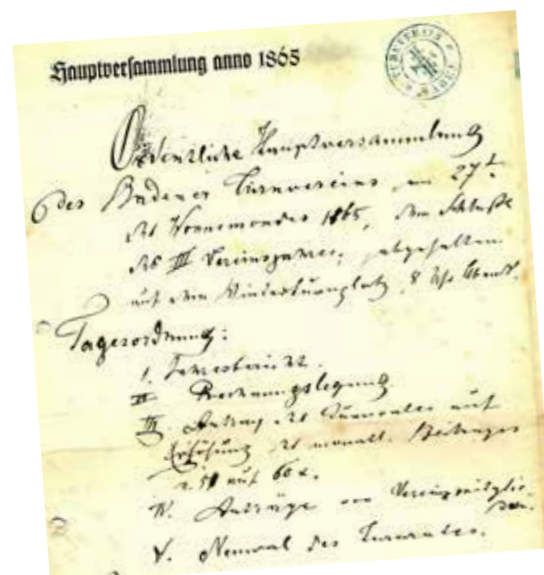 Hauptversammlung anno 1865
TURNVEREIN BADEN
Ordentliche Hauptversammlung
des Badener Turnvereins, am 27t.
des Wonnemondes 1865, dem Schluße
des III Vereinsjahres, abgehalten
auf dem Winterturnplatz, 8 Uhr Abend.
Tagesordnung:
I. Jahresbericht.
II Rechnungslegung.
III. Antrag des Turnrates auf
Erhöhung des monatl. Beitrages
v. 50 auf 60 x.
IV. Anträge von Vereinsmitglie-
dern.
V. Neuwal des Turnrates.